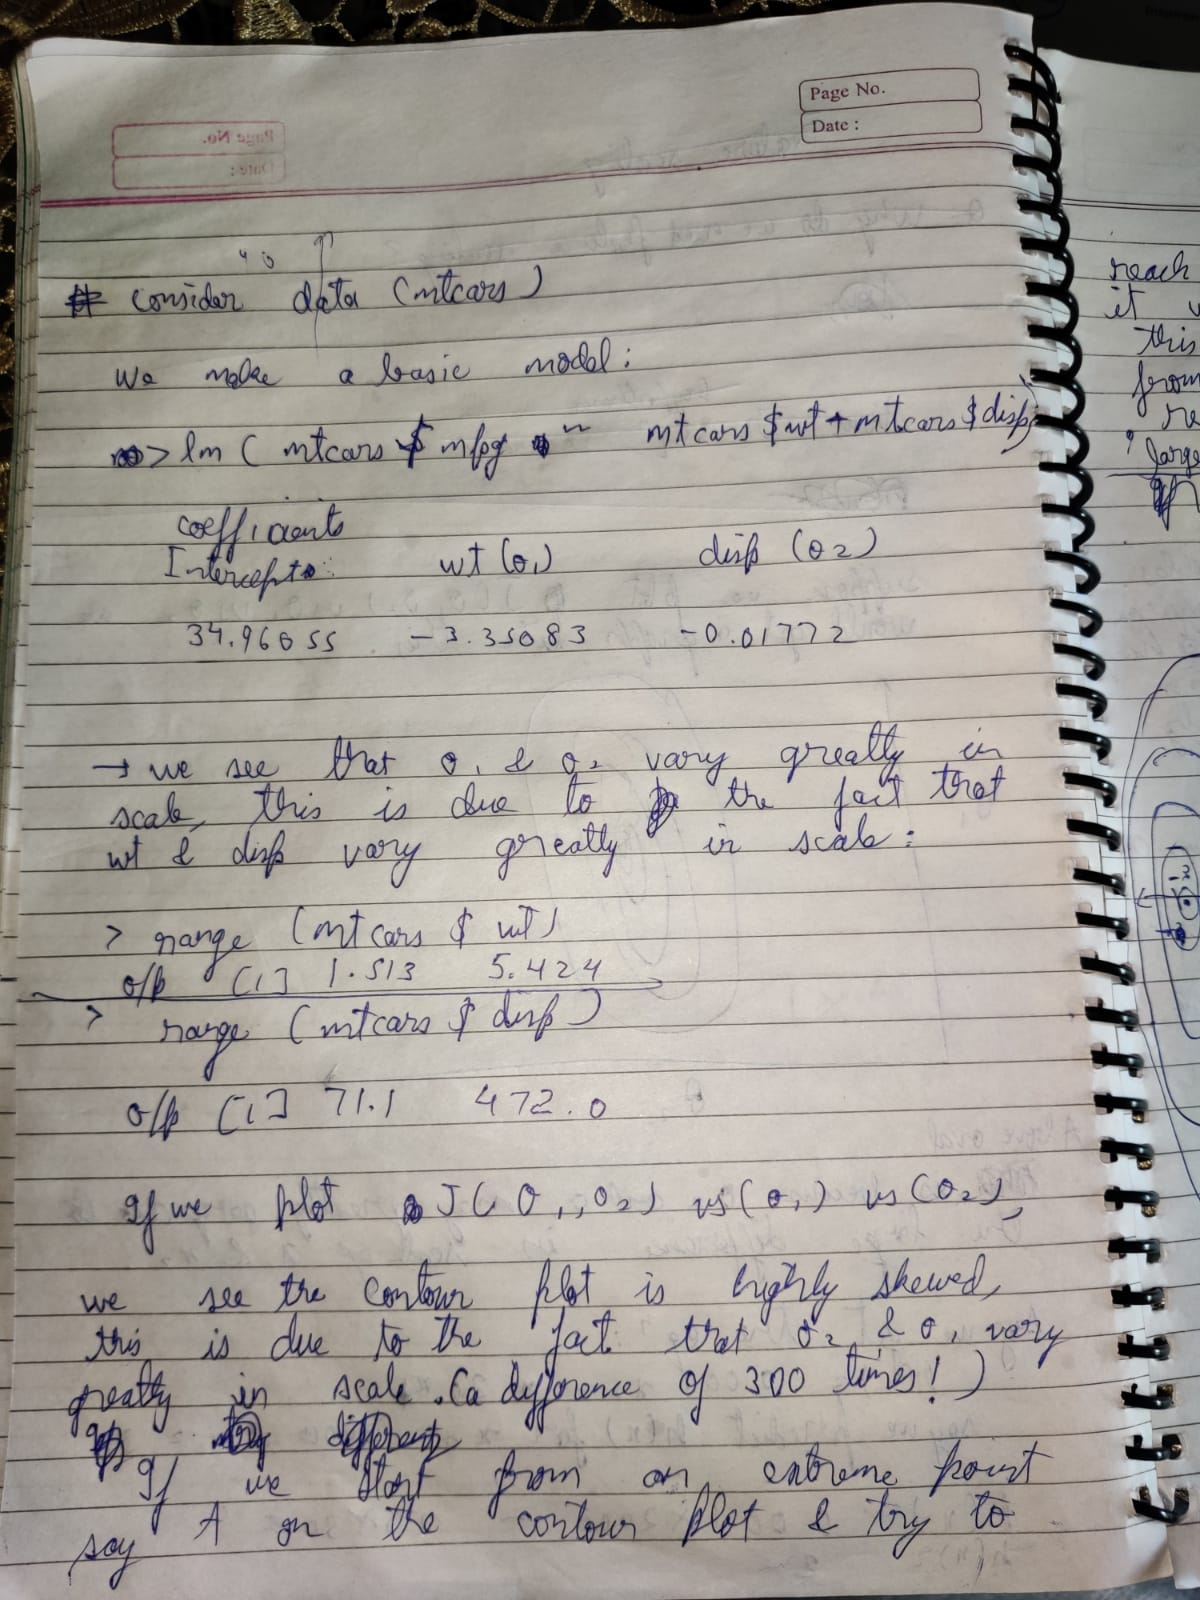 Page No.
Date :
# consider data (mtcars)
We make a basic model:
> lm ( mtcars $ mpg ~ mtcars $ wt + mtcars $ disp)
coefficients
Intercept: wt (θ1) disp (θ2)
34.96055 -3.35083 -0.01772
→ we see that θ1 & θ2 vary greatly in
scale, this is due to the fact that
wt & disp vary greatly in scale:
> range (mtcars $ wt)
o/p [1] 1.513 5.424
> range (mtcars $ disp)
o/p [1] 71.1 472.0
If we plot J(θ1, θ2) vs (θ1) vs (θ2),
we see the contour plot is highly skewed,
this is due to the fact that θ2 & θ1 vary
greatly in scale. (a difference of 300 times!)
If we start from an extreme point
say A on the contour plot & try to
reach
it
this
from
large